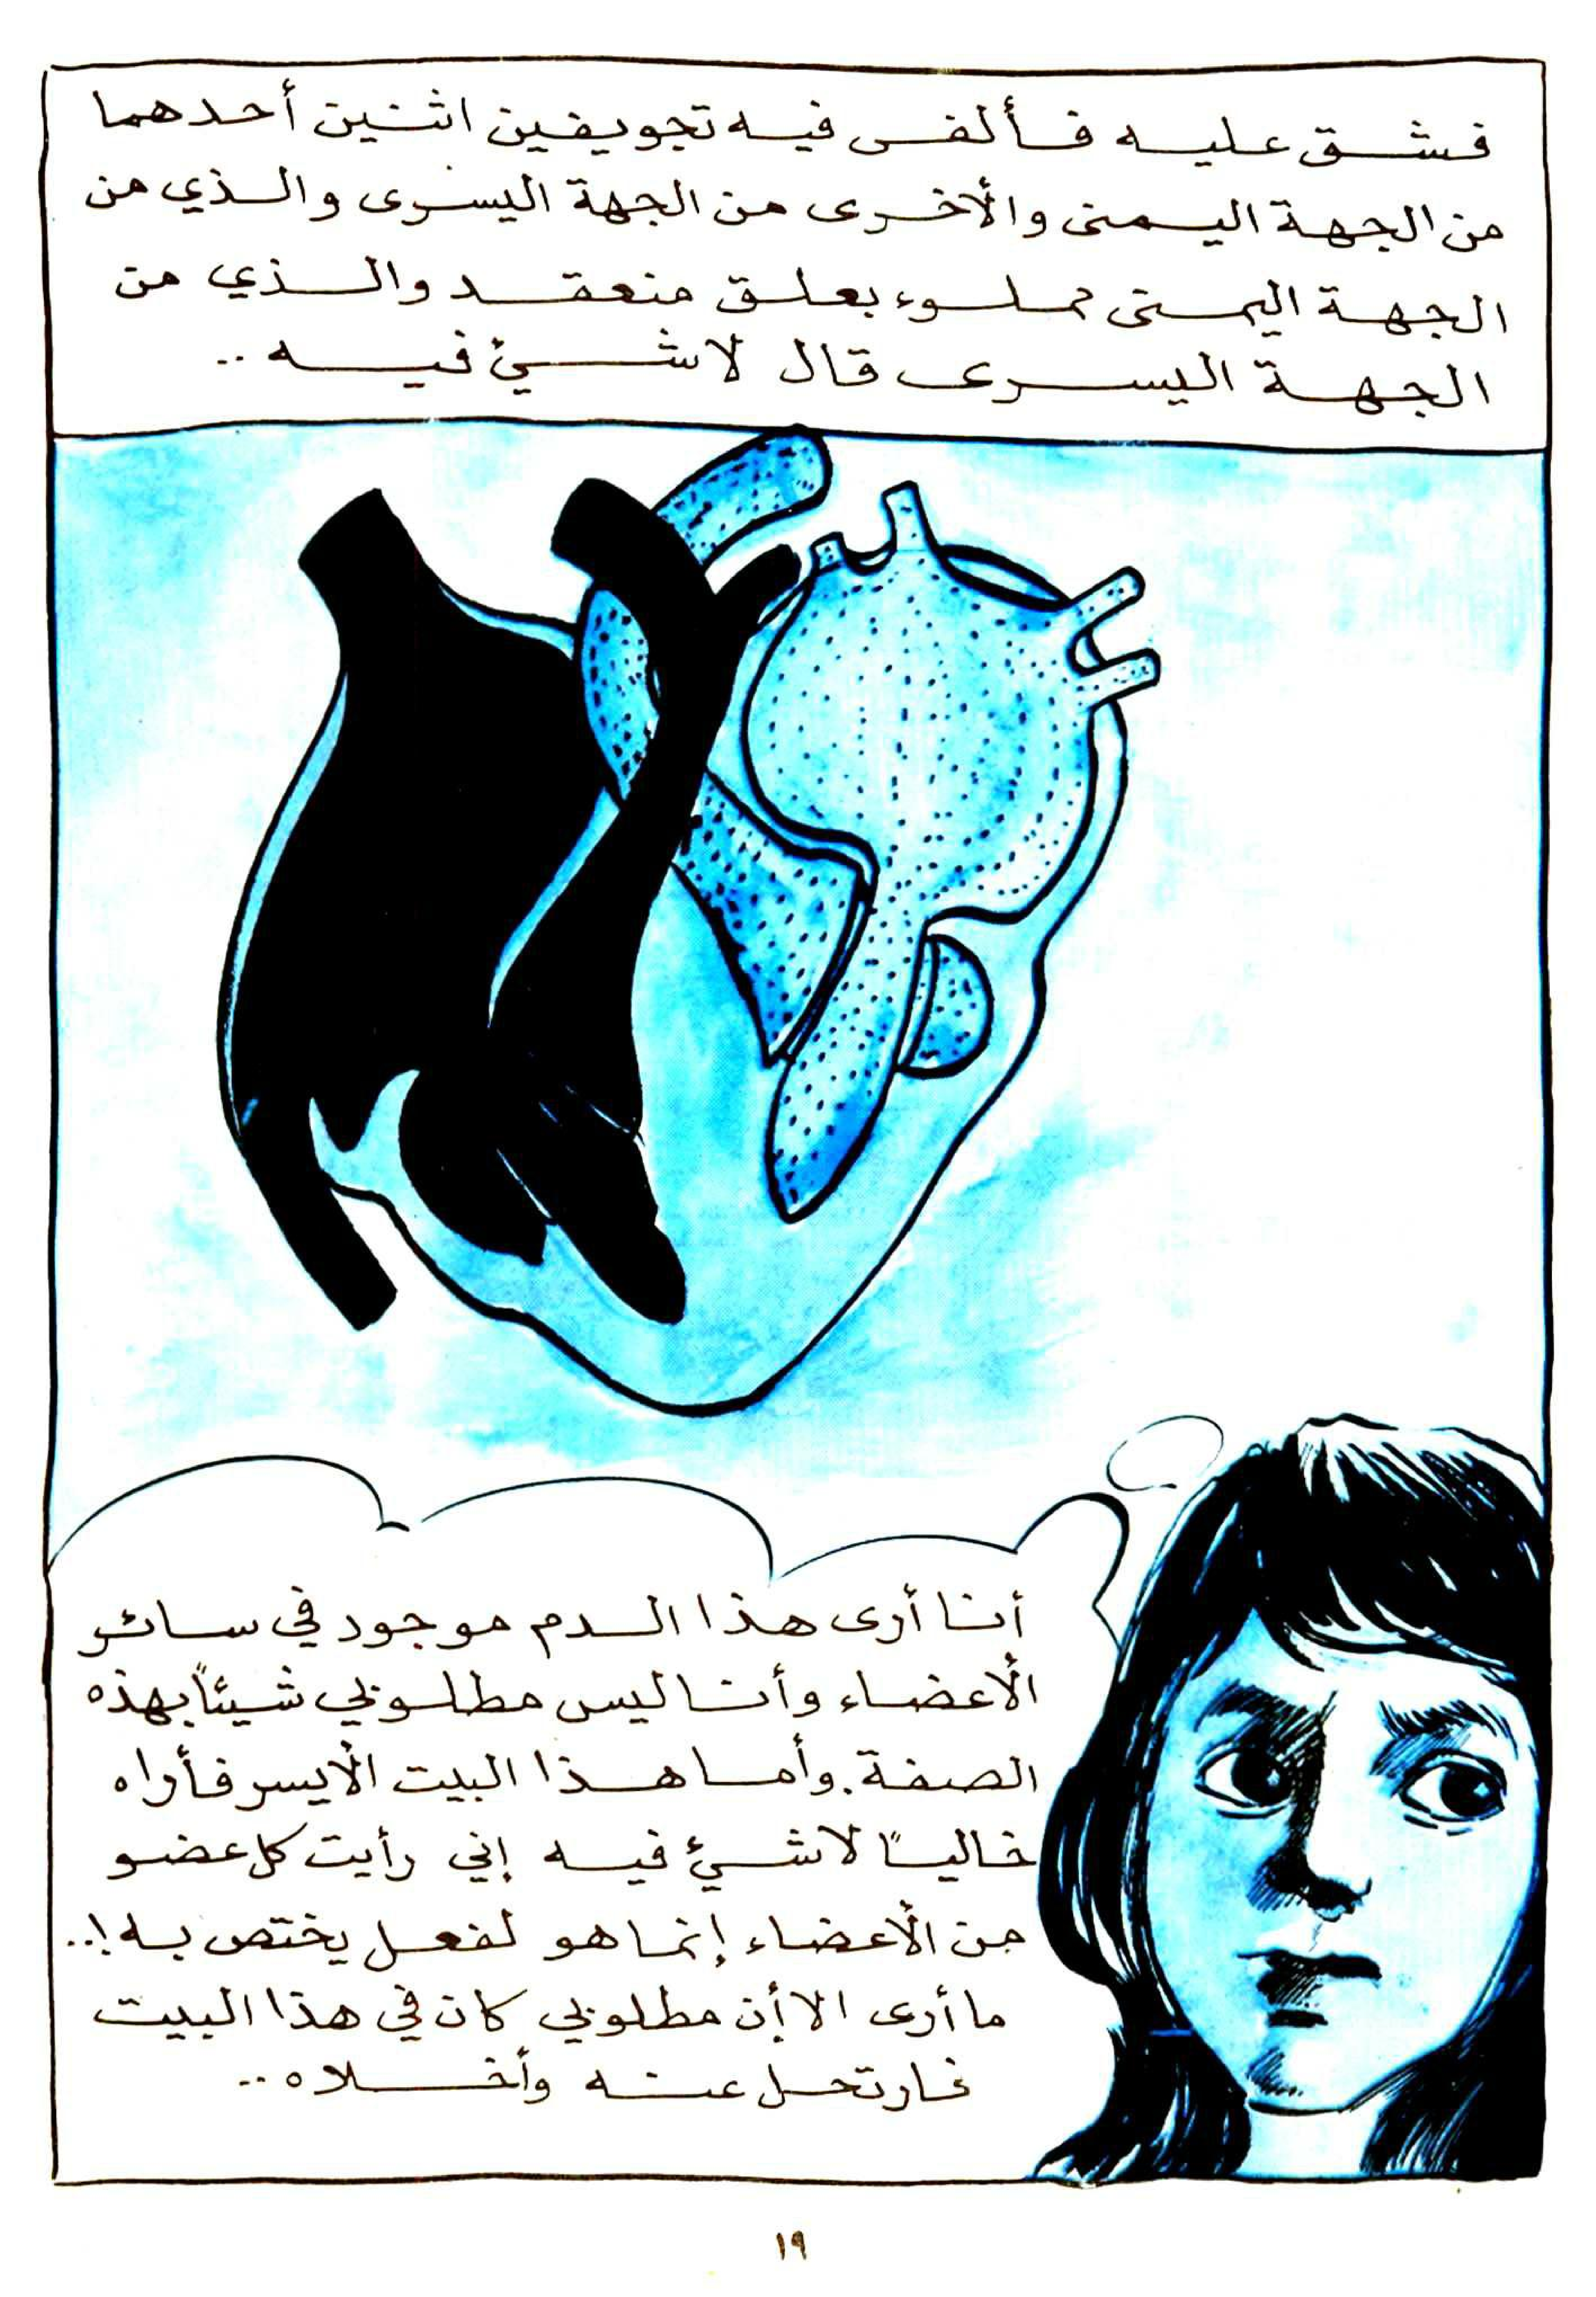 فشق عليه فألفى فيه تجويفين اثنين أحدهما
من الجهة اليمنى والأخرى من الجهة اليسرى والذي من
الجهة اليمنى مملوء بعلق منعقد والذي من
الجهة اليسرى قال لاشيئ فيه ..
أنا أرى هذا الدم موجود في سائر
الأعضاء وأنا ليس مطلوبي شيئاً بهذه
الصفة. وأما هذا البيت الأيسر فأراه
خالياً لاشيئ فيه إني رأيت كل عضو
من الأعضاء إنما هو لفعل يختص به !..
ما أرى الا أن مطلوبي كان في هذا البيت
فارتحل عنه وأخلاه ..
١٩